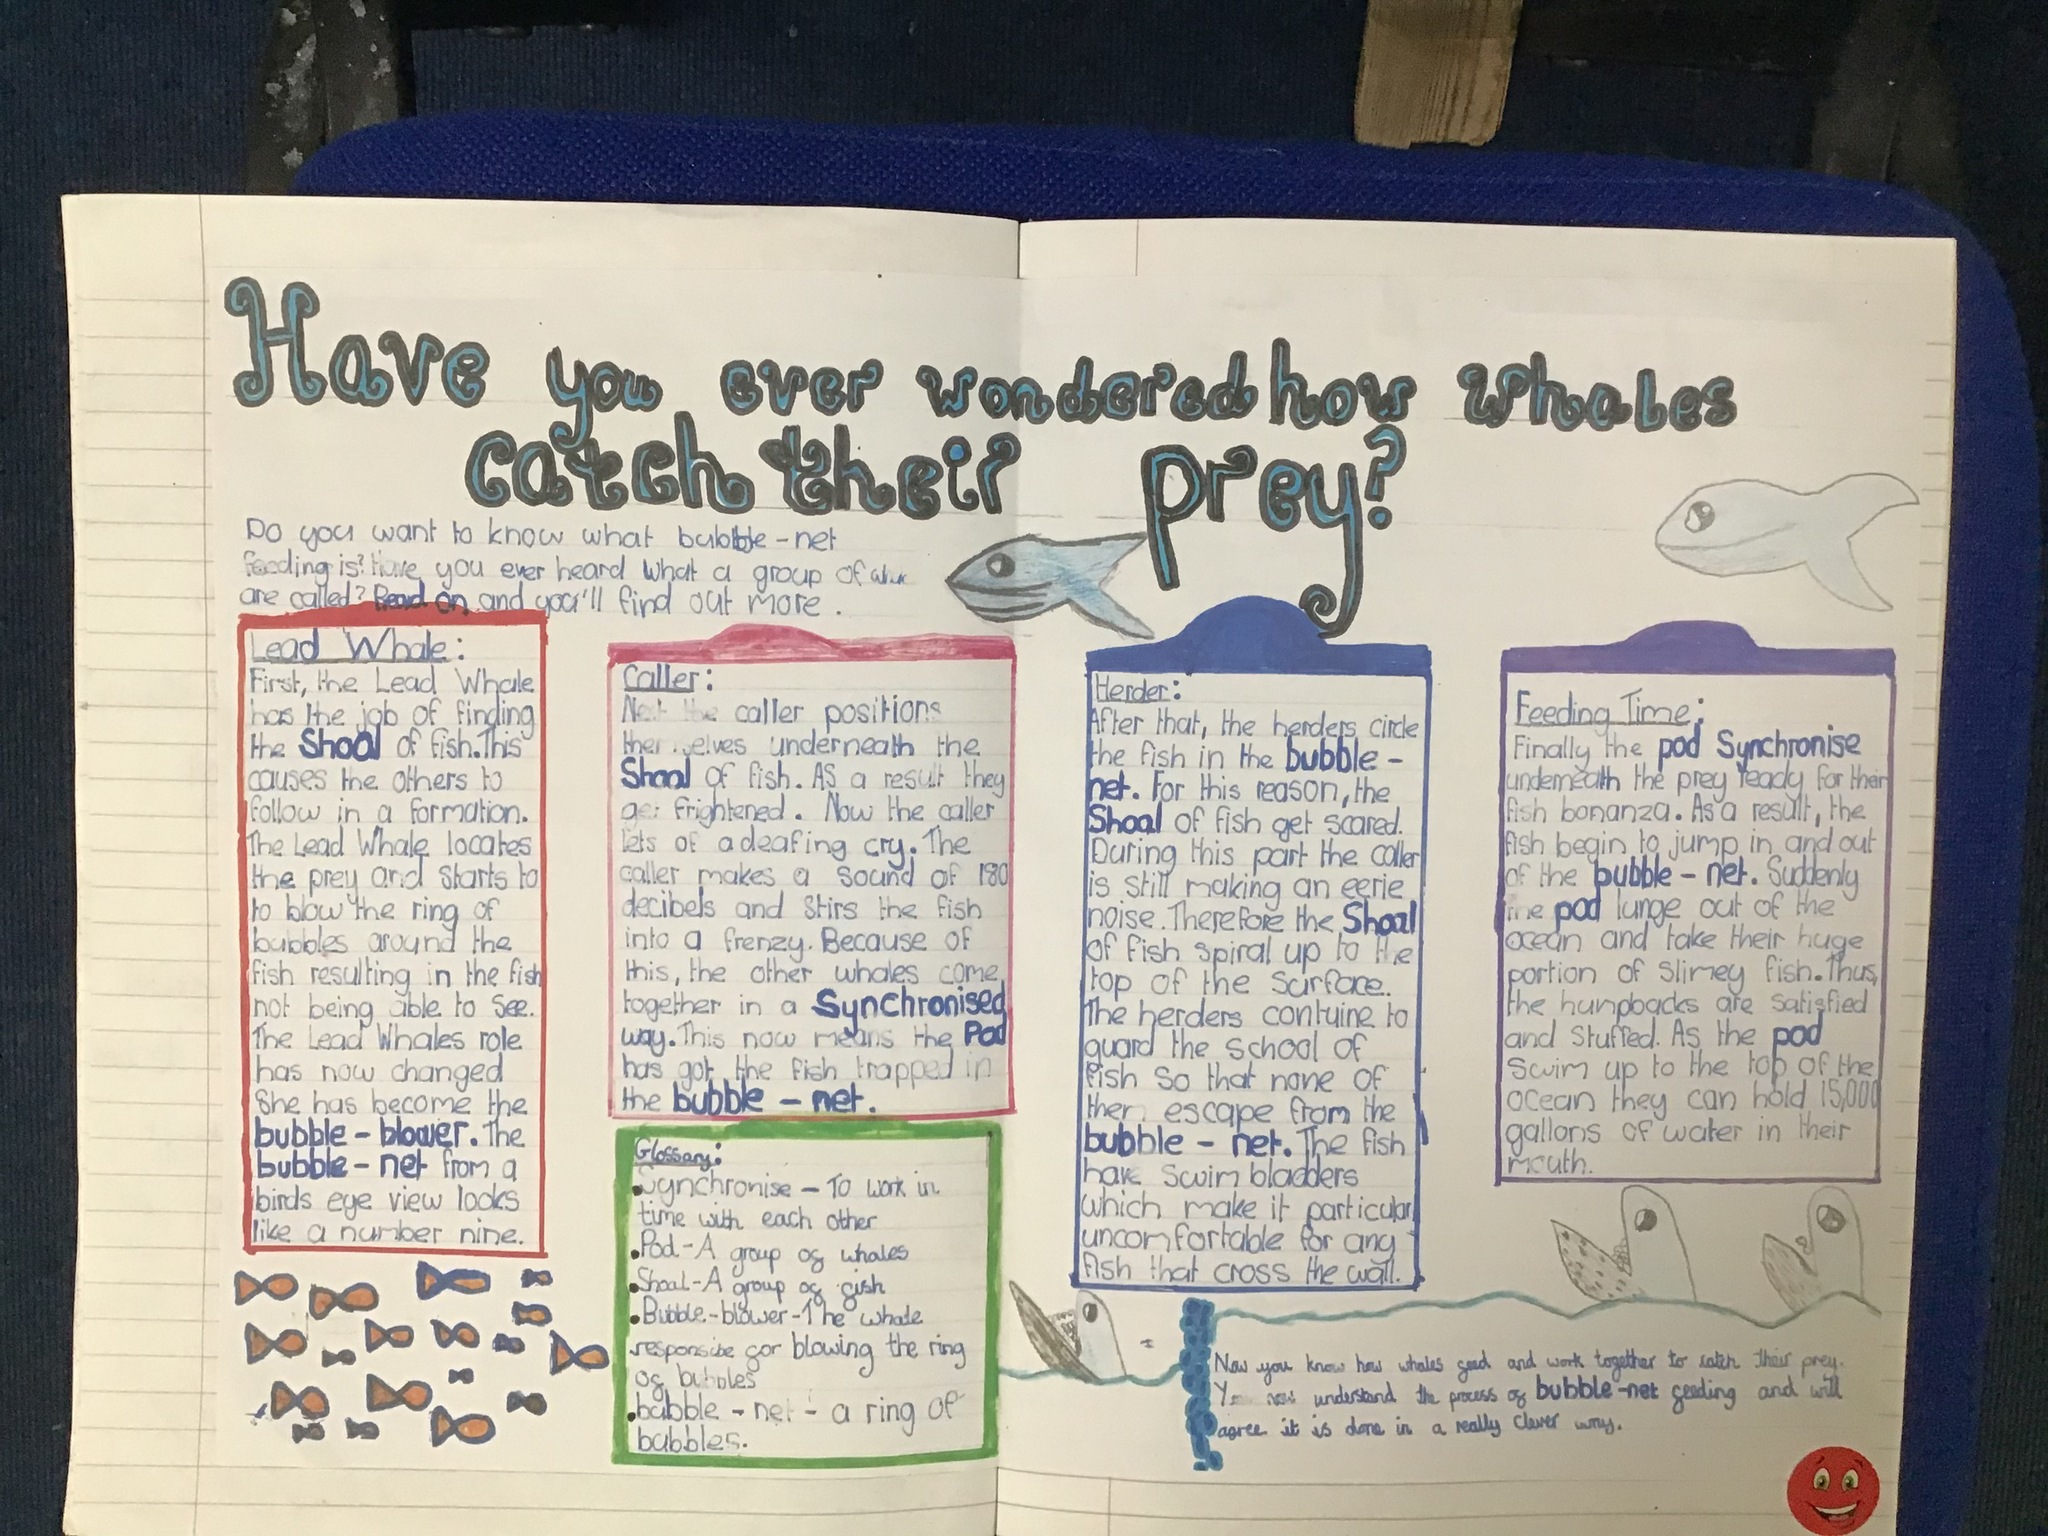 Have you ever wondered how whales
catch their prey?
Do you want to know what bubble-net
feeding is? Have you ever heard what a group of
are called? Read on and you'll find out more.
Lead Whale:
First, the Lead Whale
has the job of finding
the Shoal of fish. This
causes the others to
follow in a formation.
The Lead Whale locates
the prey and starts to
to blow the ring of
bubbles around the
fish resulting in the fish
not being able to see.
The Lead Whales role
has now changed
She has become the
bubble-blower. The
bubble-net from a
birds eye view looks
like a number nine.
Caller:
Next the caller positions
themselves underneath the
Shoal of fish. As a result they
get frightened. Now the caller
lets of a deafing cry. The
caller makes a sound of 180
decibels and stirs the fish
into a frenzy. Because of
this, the other whales come
together in a Synchronised
way. This now means the Pod
has got the fish trapped in
the bubble-net.
Glossary:
•Synchronise - To work in
time with each other
•Pod - A group of whales
•Shoal - A group of fish
•Bubble-blower - The whale
responsible for blowing the ring
of bubbles
•bubble-net - a ring of
bubbles.
Herder:
After that, the herders circle
the fish in the bubble-
net. For this reason, the
Shoal of fish get scared.
During this part the caller
is still making an eerie
noise. Therefore the Shoal
of fish spiral up to the
top of the surface.
The herders contuine to
guard the school of
fish so that none of
them escape from the
bubble-net. The fish
have swim bladders
which make it particular
uncomfortable for any
fish that cross the wall.
Feeding Time:
Finally the pod Synchronise
underneath the prey ready for their
fish bonanza. As a result, the
fish begin to jump in and out
of the bubble-net. Suddenly
the pod lunge out of the
ocean and take their huge
portion of slimey fish. Thus,
the humpbacks are satisfied
and stuffed. As the pod
swim up to the top of the
ocean they can hold 15,000
gallons of water in their
mouth.
Now you know how whales feed and work together to catch their prey.
You now understand the process of bubble-net feeding and will
agree it is done in a really clever way.